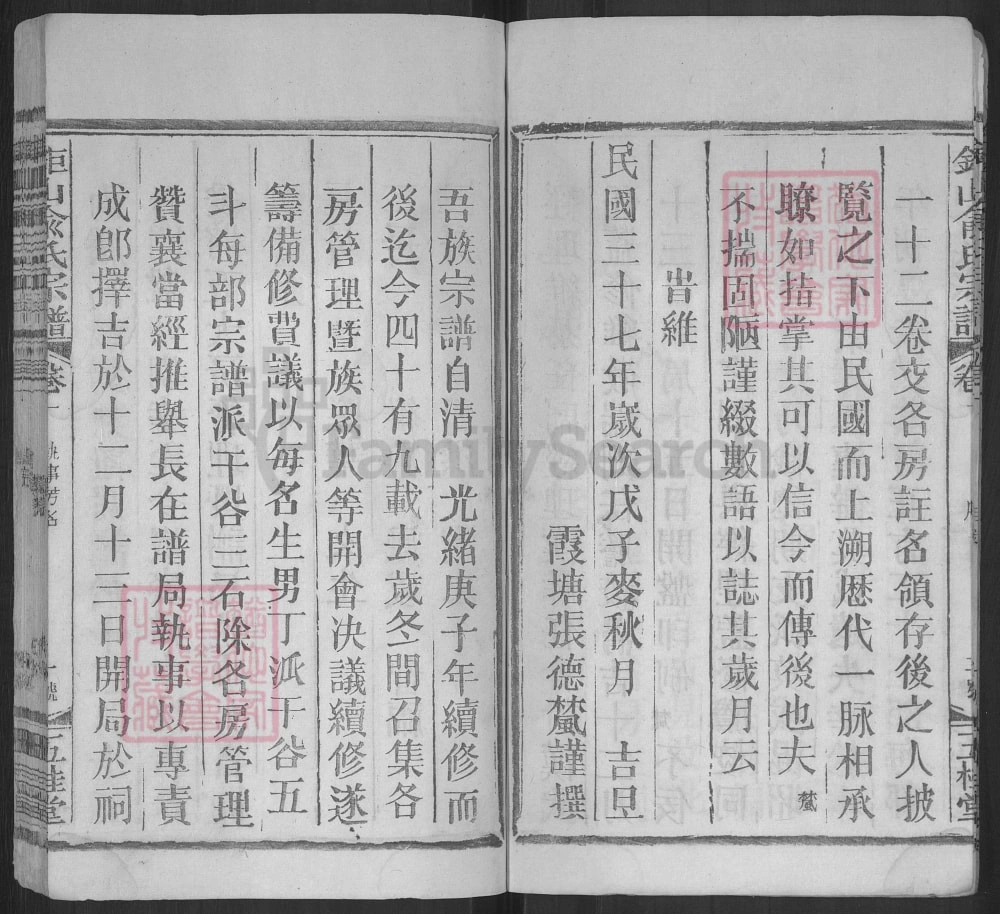 一十二卷交各房註名領存後之人披
覽之下由民國而上溯歷代一脉相承
瞭如指掌其可以信今而傳後也夫
不揣固陋謹綴數語以誌其歲月云
旹維
民國三十七年嵗次戊子麥秋月 吉旦
霞塘張德蘍謹撰
吾族宗譜自清 光緒庚子年續修而
後迄今四十有九載去歲冬間召集各
房管理暨族眾人等開會决議續修遂
籌備修費議以每名生男丁派干谷五
斗每部宗譜派干谷三石除各房管理
贊襄當經推舉長在譜局執事以專責
成卽擇吉於十二月十三日開局於祠
俞氏宗譜
卷一
五桂堂
FamilySearch